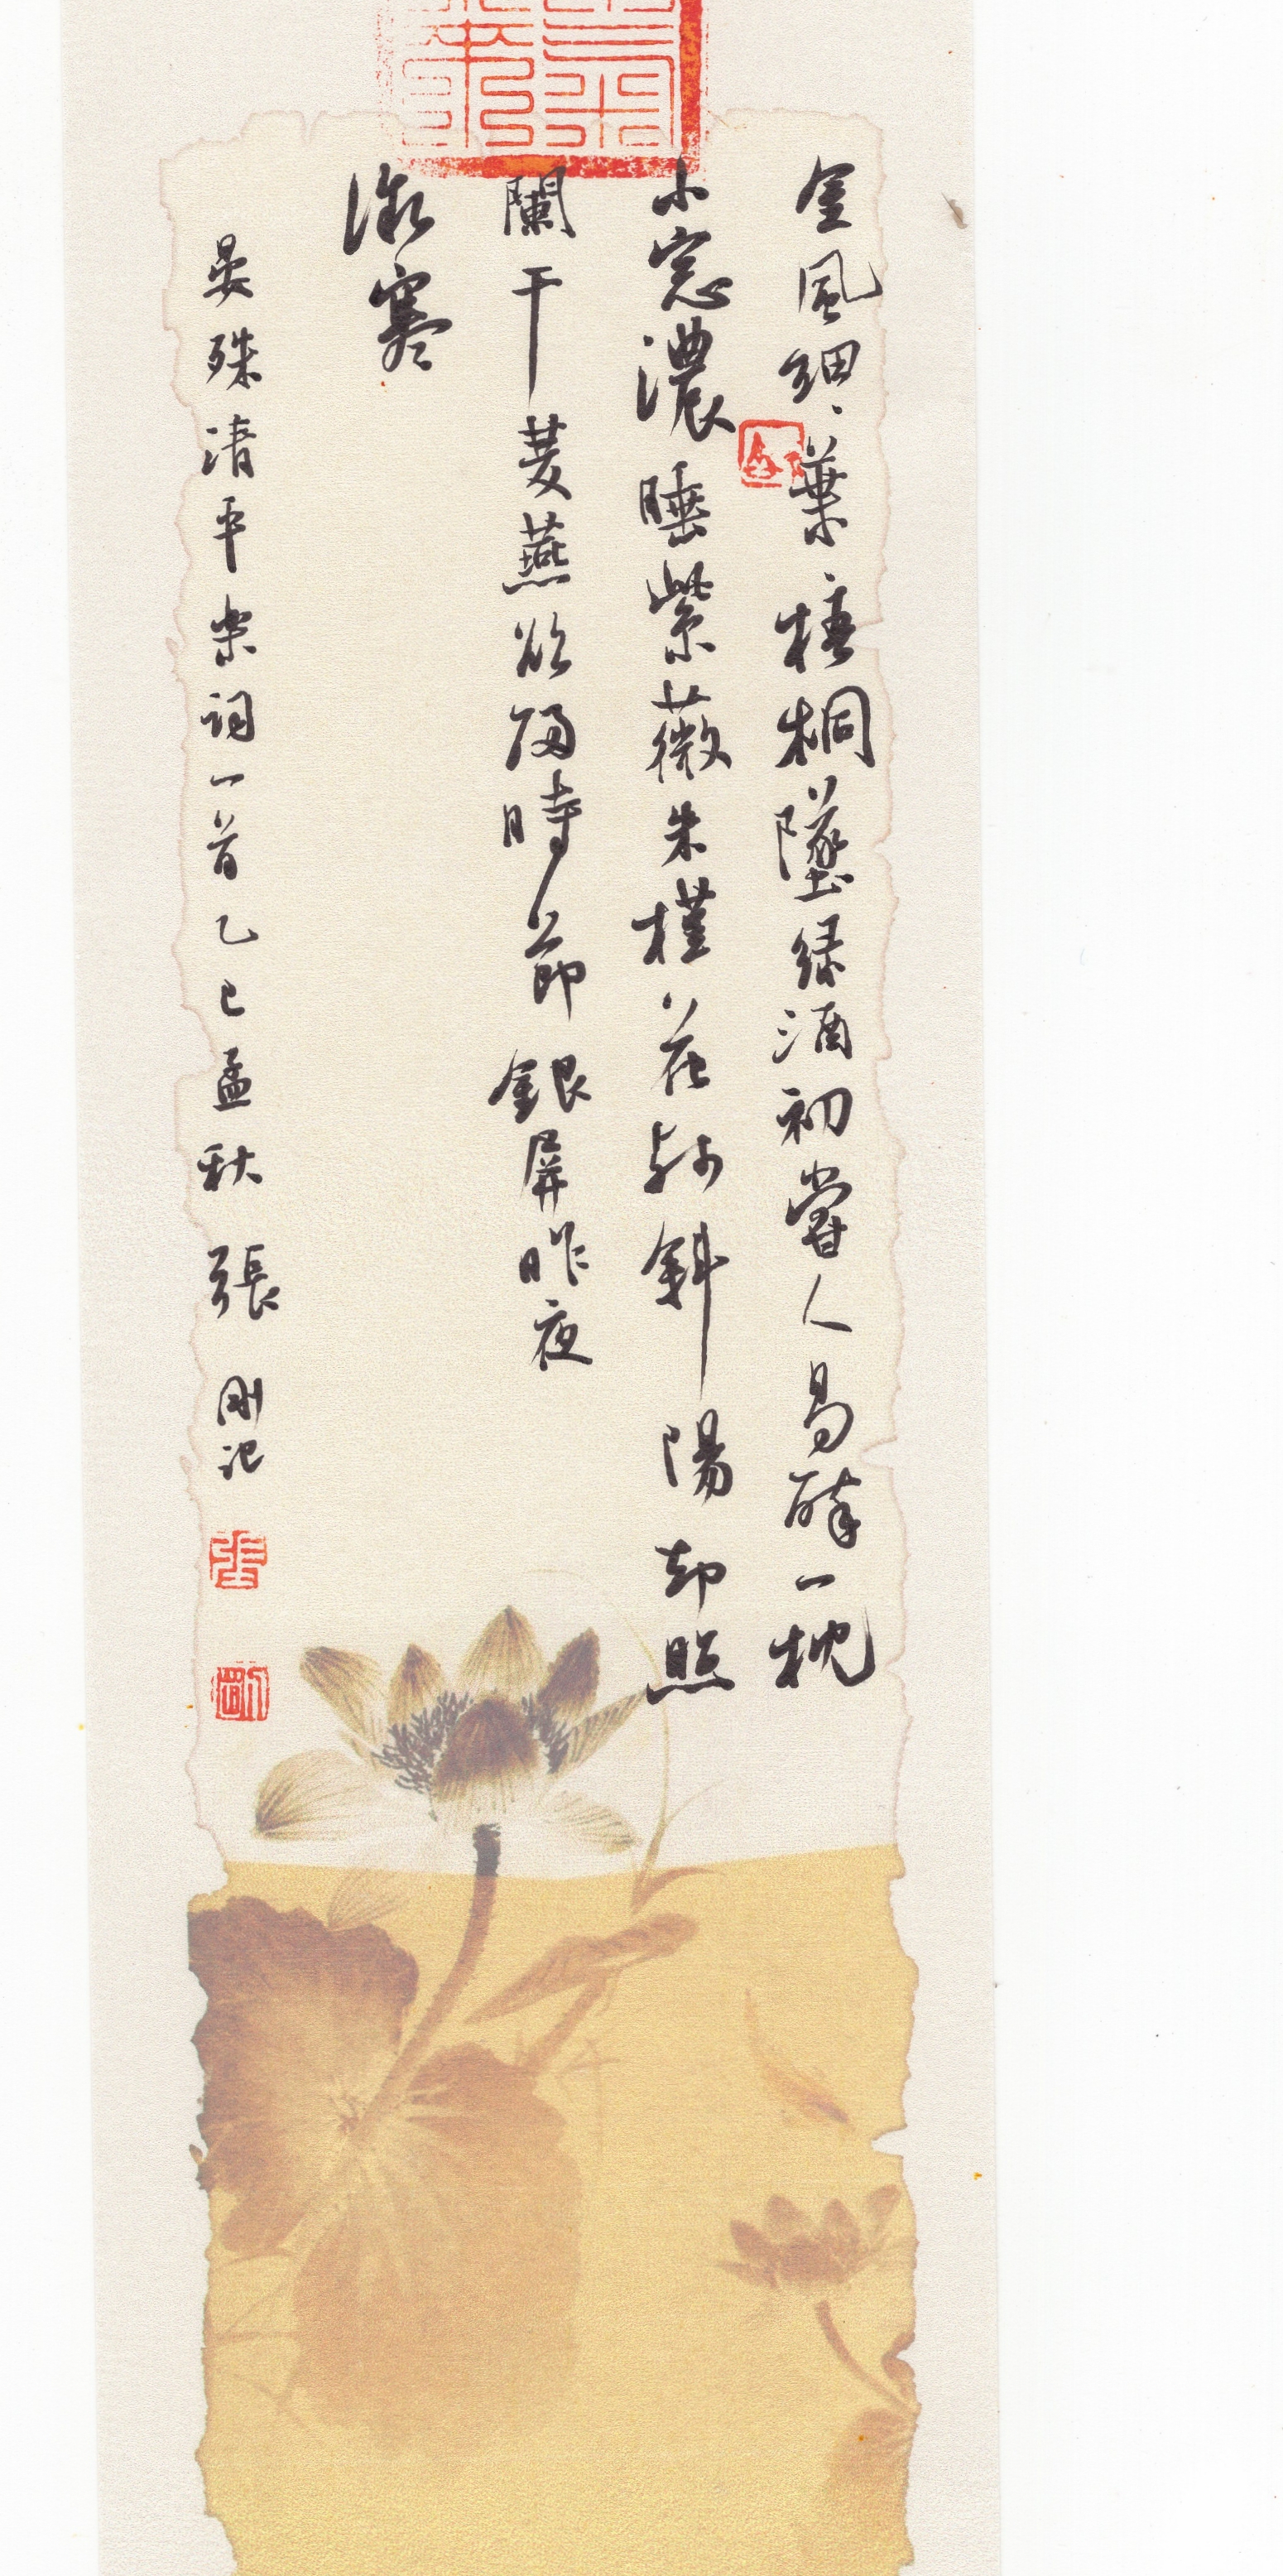 金風細、葉、梧桐墜綠酒初嘗人易醉一枕
小窓濃睡紫薇朱槿花殘斜陽却照
闌干雙燕欲歸時節銀屏昨夜
微寒
晏殊清平樂詞一首乙巳孟秋張剛記